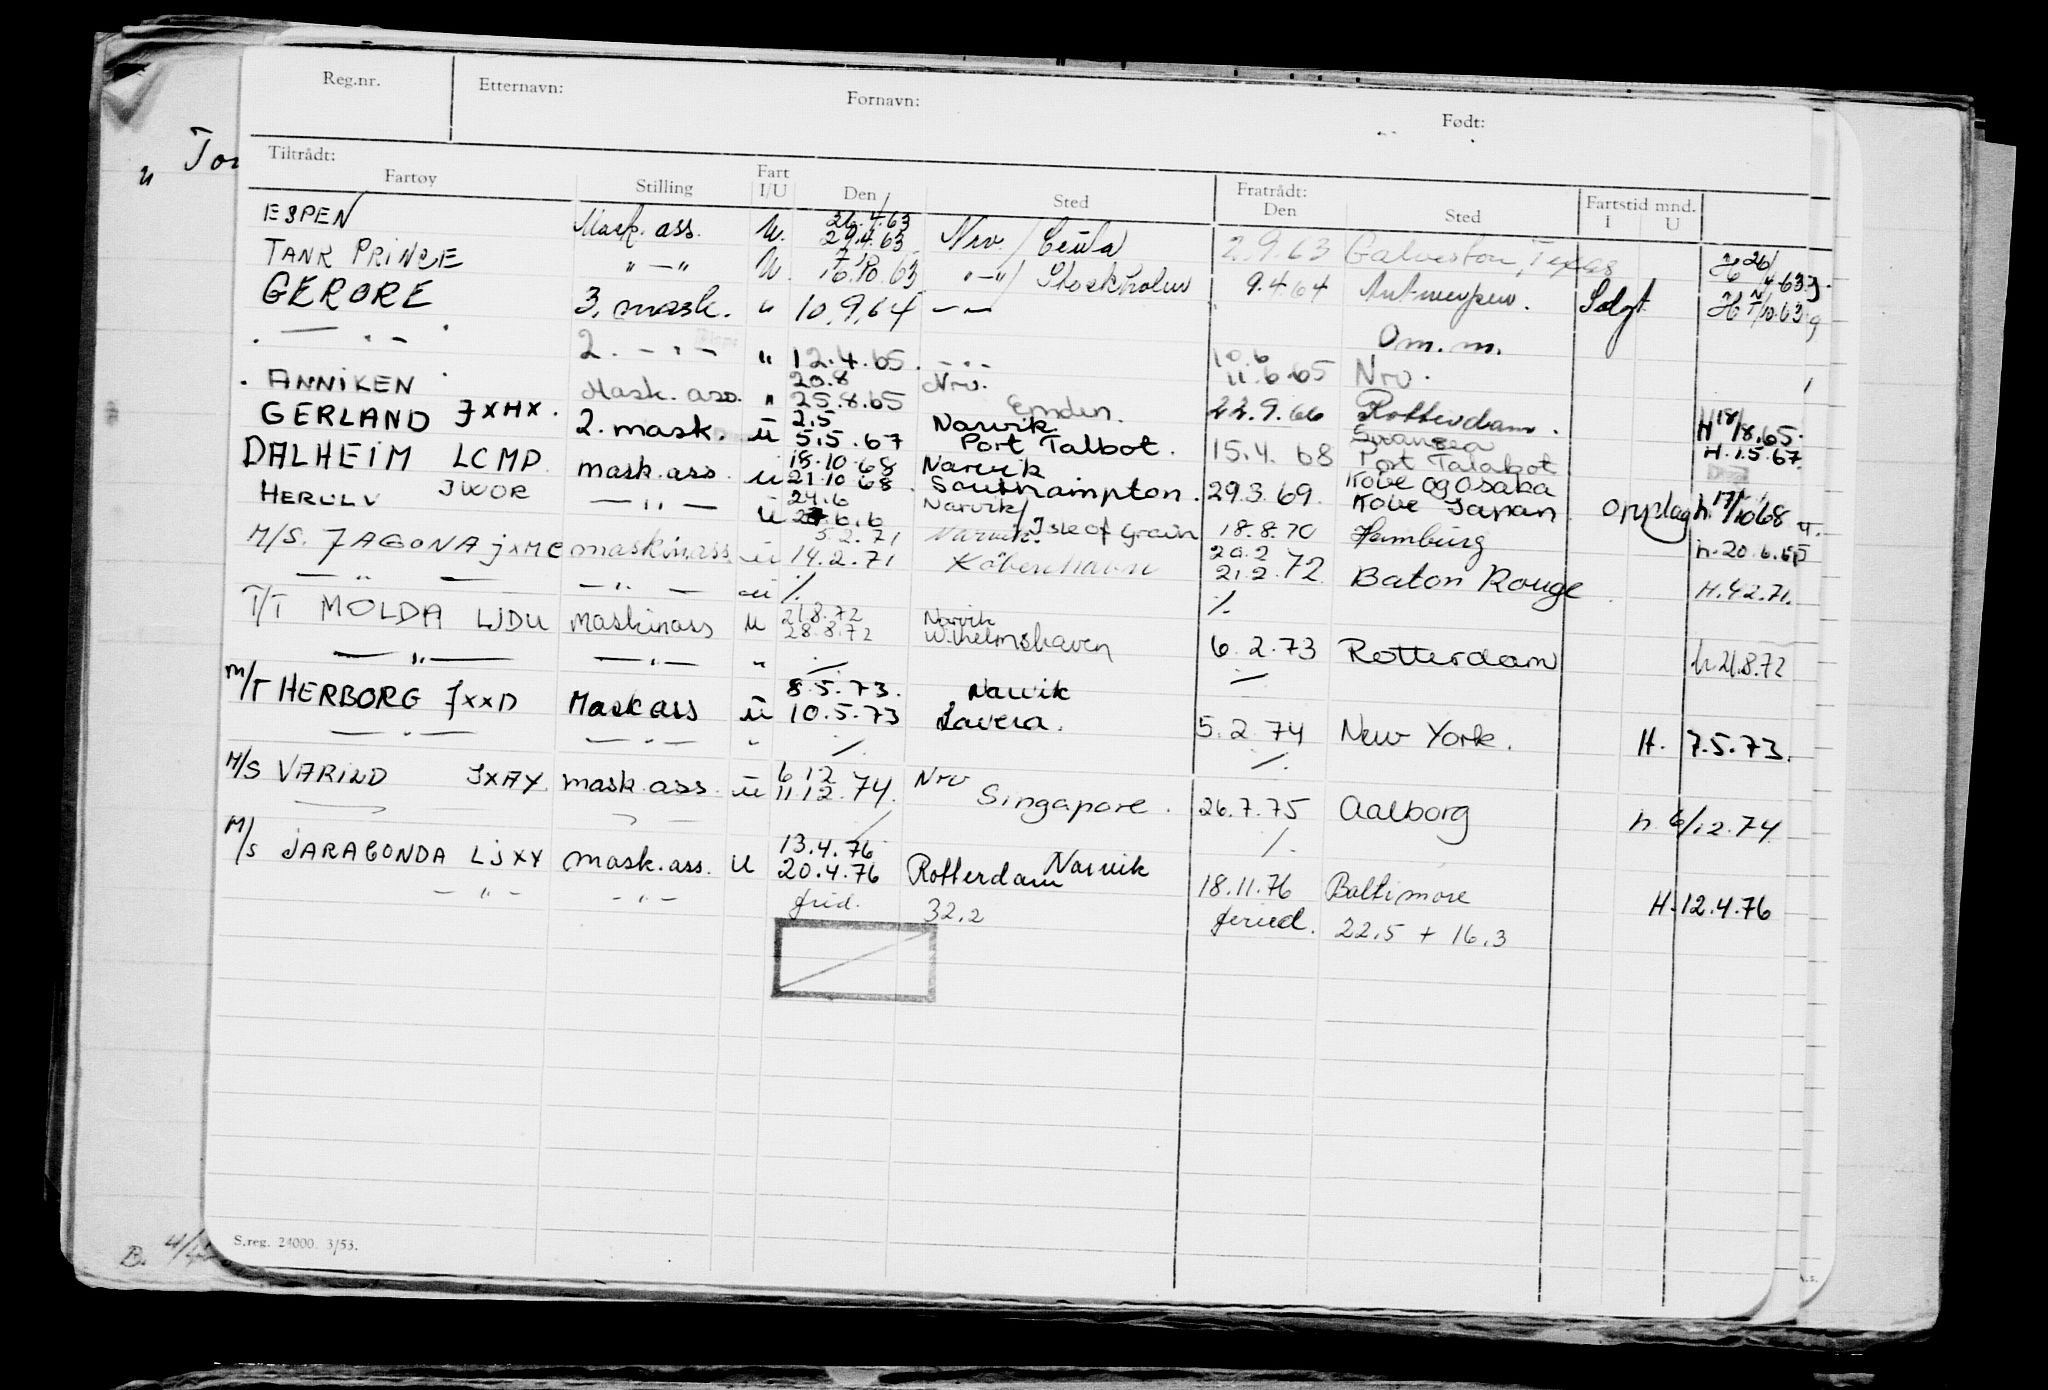 Reg.nr. Etternavn: Fornavn: Født:
Tiltrådt: Fratrådt: Fartstid mnd.
Fartøy Stilling Fart I/U Den Sted Den Sted I U
ESPEN Mask. ass. U. 26.4.63 29.4.63 Nrv. / Ceuta 2.9.63 Galveston, Texas H 26/4-63
TANK PRINCE " — " U. 7/10 16.10.63 " — " / Stockholm 9.4.64 Antwerpen. Solgt H 7/10.63
GERORE 3. mask. " 10.9.64 — —
— " — 2. — " — " 12.4.65. — " — Om.m.
10.6 11.6.65 Nrv.
ANNIKEN Mask. ass. " 20.8 25.8.65 Nrv. Emden. 22.9.66 Rotterdam. H 18/8.65.
GERLAND JXHX. 2. mask. ū 2.5 5.5.67 Narvik Port Talbot. 15.4.68 Swansea Port Talabot H. 1.5.67.
DALHEIM LCMP mask. ass. u 18.10.68 21.10.68 Narvik Southampton. 29.3.69. Kobe og Osaka Kobe Japan Opplag h. 17/1068
HERULV JWOR — " — ū 24.6 Narvik / Isle of Grain 18.8.70 Hamburg h. 20.6.
M/S. JAGONA JXMC maskinass ū 5.2.71 14.2.71 Narvik. København 20.2 21.2.72 Baton Rouge H. 4.2.71.
— " — — " — ū ⁒ ⁒
T/T MOLDA LJDU Maskinass u 21.8.72 28.8.72 Narvik Wilhelmshaven 6.2.73 Rotterdam h. 21.8.72
— " — — " — " ⁒ ⁒
M/T HERBORG JXXD Mask ass ū 8.5.73. 10.5.73 Narvik Lavera. 5.2.74 New York. H. 7.5.73.
— " — — " — " ⁒ ⁒
M/S VARILD JXAY. mask. ass. ū 6.12 11.12.74. Nrv Singapore. 26.7.75 Aalborg h. 6/12.74
M/S JARAGONDA LJXY mask. ass. U 13.4.76 20.4.76 Narvik Rotterdam 18.11.76 Baltimore H. 12.4.76
— " — — " — frid. 32.2 feried. 22.5 + 16.3
S.reg. 24000. 3/53.
" Tor
B. 4/4